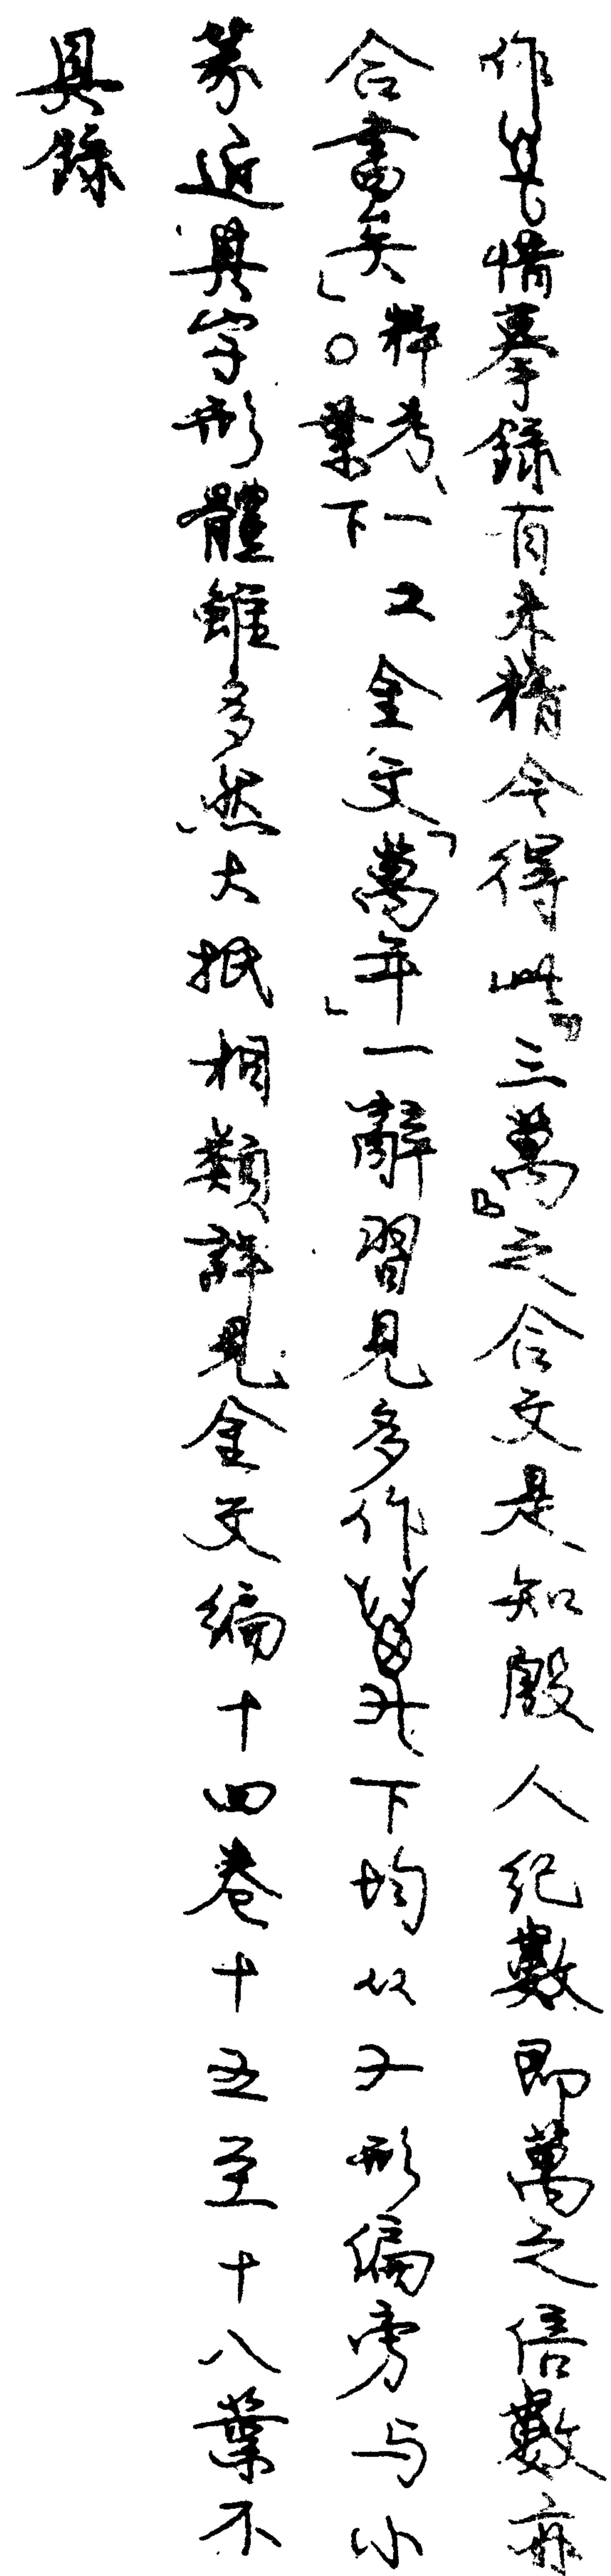 作惜摹錄有未精今得此『三萬』之合文是知殷人紀數即萬之倍數亦
合書矣」粹考、一〇葉下 2 金文「萬年」一辭習見多作下均从又形偏旁与小
篆近其字形體雖多然大抵相類詳見金文編十四卷十五至十八葉不
具錄